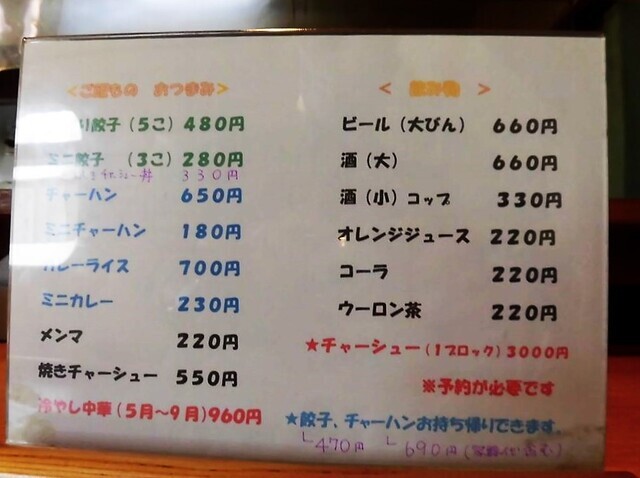 <ご飯もの おつまみ>
り餃子(5こ) 480円
ミニ餃子 (3こ) 280円
チャーシュー丼 330円
チャーハン 650円
ミニチャーハン 180円
カレーライス 700円
ミニカレー 230円
メンマ 220円
焼きチャーシュー 550円
冷やし中華(5月～9月)960円
< 飲み物 >
ビール(大びん) 660円
酒(大) 660円
酒(小)コップ 330円
オレンジジュース 220円
コーラ 220円
ウーロン茶 220円
★チャーシュー(1ブロック)3000円
※予約が必要です
★餃子、チャーハンお持ち帰りできます。
470円 690円(容器代含む)